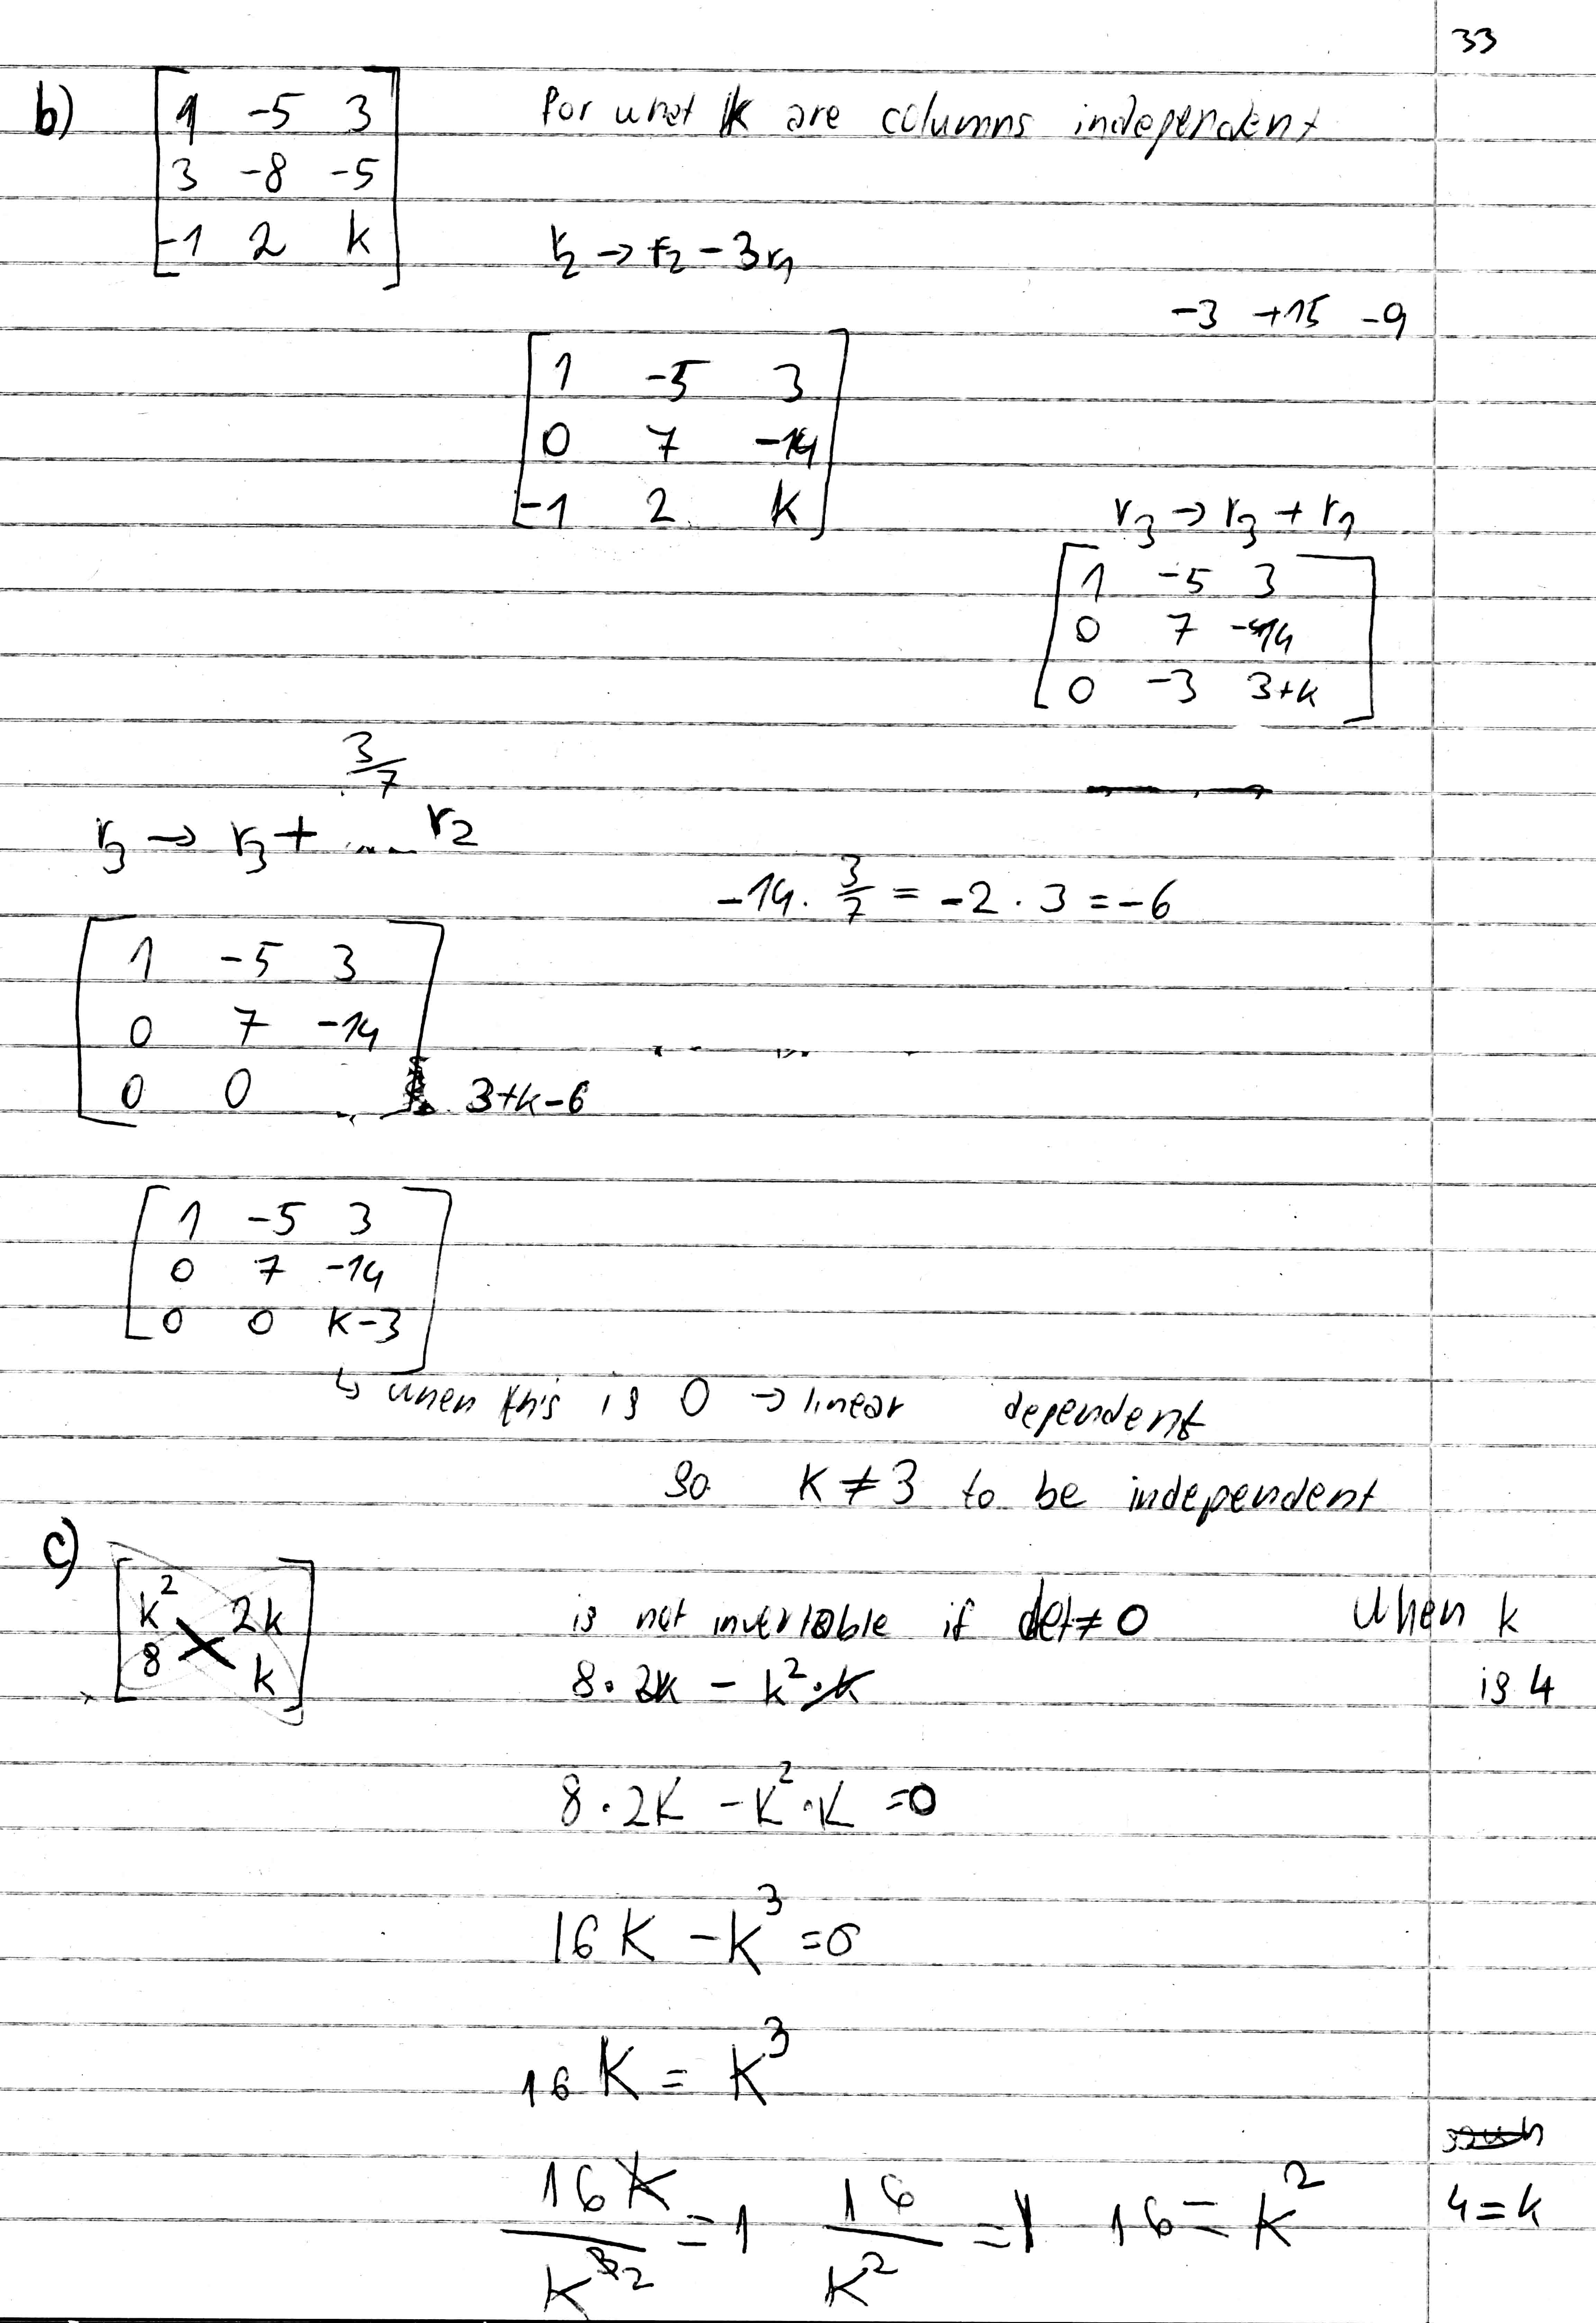 33
b) [1 -5 3
3 -8 -5
-1 2 k]
For what k are columns independent
r2 → r2 - 3r1
-3 +15 -9
[1 -5 3
0 7 -14
-1 2 k]
r3 → r3 + r1
[1 -5 3
0 7 -14
0 -3 3+k]
r3 → r3 + 3/7 r2
-14 · 3/7 = -2 · 3 = -6
[1 -5 3
0 7 -14
0 0 ] 3+k-6
[1 -5 3
0 7 -14
0 0 k-3]
↳ when this is 0 → linear dependent
so k ≠ 3 to be independent
c) [k² 2k
8 k]
is not invertable if det ≠ 0
when k
is 4
8 · 2k - k² · k
8 · 2k - k² · k = 0
16k - k³ = 0
16k = k³
16k/k³² = 1 16/k² = 1 16 = k²
4 = k